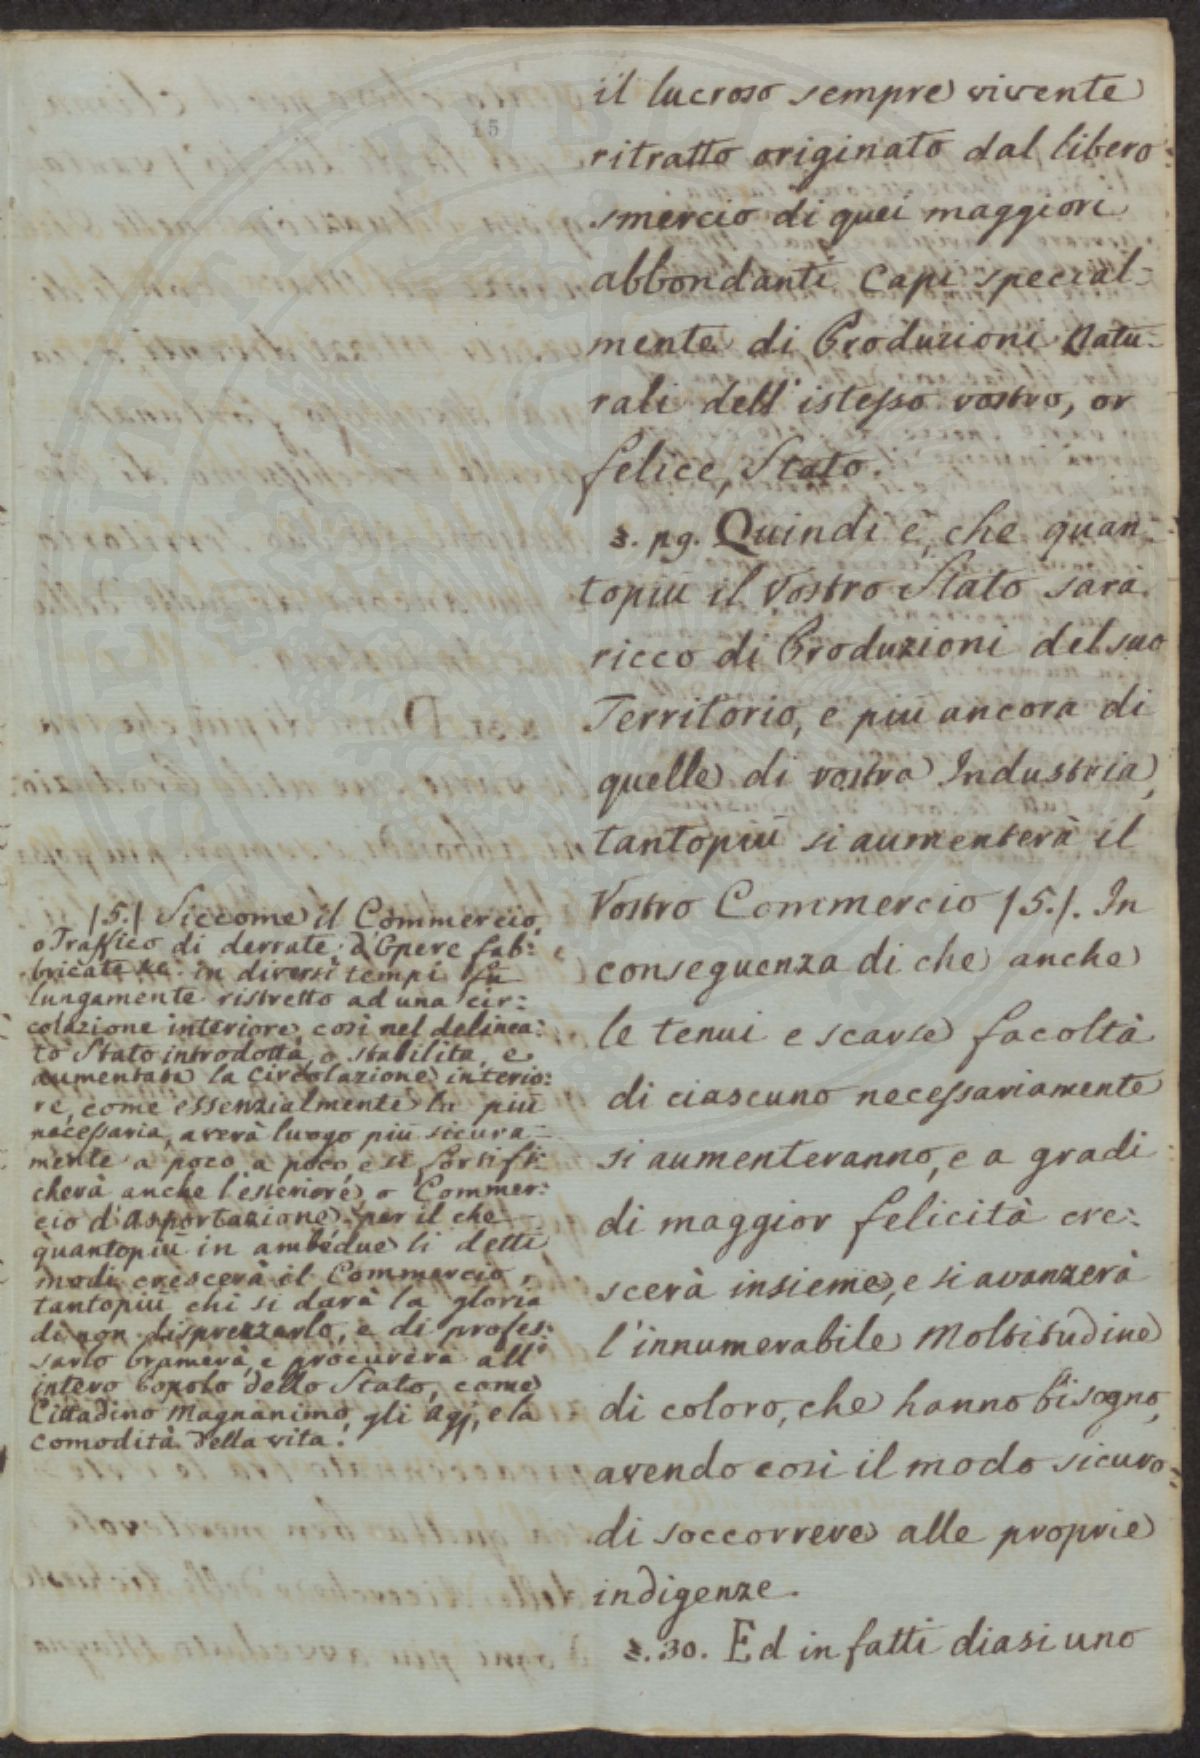 15
il lucroso sempre vivente
ritratto originato dal libero
smercio di quei maggiori
abbondanti Capi special-
mente di Produzioni Natu-
rali dell' istesso vostro, or
felice, Stato.
§. 29. Quindi è, che quan-
topiù il Vostro Stato sarà
ricco di Produzioni del suo
Territorio, e più ancora di
quelle di vostra Industria,
tantopiù si aumenterà il
Vostro Commercio /5./. In
conseguenza di che anche
le tenui e scarse facoltà
di ciascuno necessariamente
si aumenteranno, e a gradi
di maggior felicità cre:
scerà insieme, e si avanzerà
l'innumerabile Moltitudine
di coloro, che hanno bisogno,
avendo così il modo sicuro
di soccorrere alle proprie
indigenze.
§. 30. Ed in fatti diasi uno
/5./ Siccome il Commercio,
o Traffico di derrate, d'Opere fab:
bricate &c. in diversi tempi fu
lungamente ristretto ad una cir:
colazione interiore, così nel delinea:
to Stato introdotta, o stabilita, e
aumentata la Circolazione interio:
re, come essenzialmente la più
necessaria, averà luogo più sicura-
mente a poco a poco, e si fortifi:
cherà anche l'esteriore, o Commer:
cio d'Asportazione: per il che
quantopiù in ambedue li detti
modi crescerà il Commercio,
tantopiù chi si darà la gloria
di non disprezzarlo, e di profes:
sarlo bramerà, e procurerà all'
intero Popolo dello Stato, come
Cittadino Magnanimo, gli Agj, e la
comodità della vita.